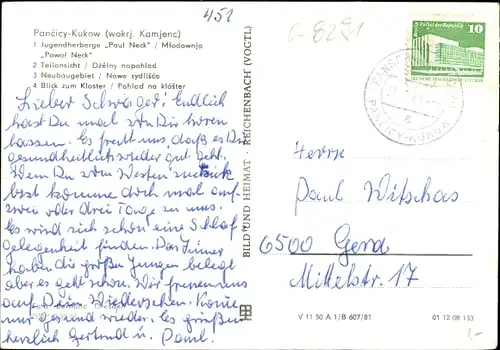 451
a-8291
Pančicy-Kukow (wokrj. Kamjenc)
1 Jugendherberge „Paul Neck" / Młodownja
„Pawoł Neck"
2 Teilansicht / Dźělny napohlad
3 Neubaugebiet / Nowe sydlišćo
4 Blick zum Kloster / Pohlad na klóšter
Lieber Schwager! Endlich
hast Du mal von Dir hören
lassen. Es freut uns, dass es Dir
gesundheitlich wieder gut geht.
Wenn Du vom Westen zurück
bist komme doch mal auf
zwei oder drei Tage zu uns.
Es wird sich schon eine Schlaf
gelegenheit finden. Das Zimmer
haben die großen Jungen belegt
aber es geht schon. Wir freuen uns
auf Dein Wiedersehen. Komme
nur gesund wieder. Es grüßen
herzlich Gertrud u. Paul.
BILD UND HEIMAT · REICHENBACH (VOGTL)
10
PANČICY-KUKOW
Herrn
Paul Witschas
6500 Gera
Mittelstr. 17
V 11 50 A 1/B 607/81
01 12 08 153
1,-